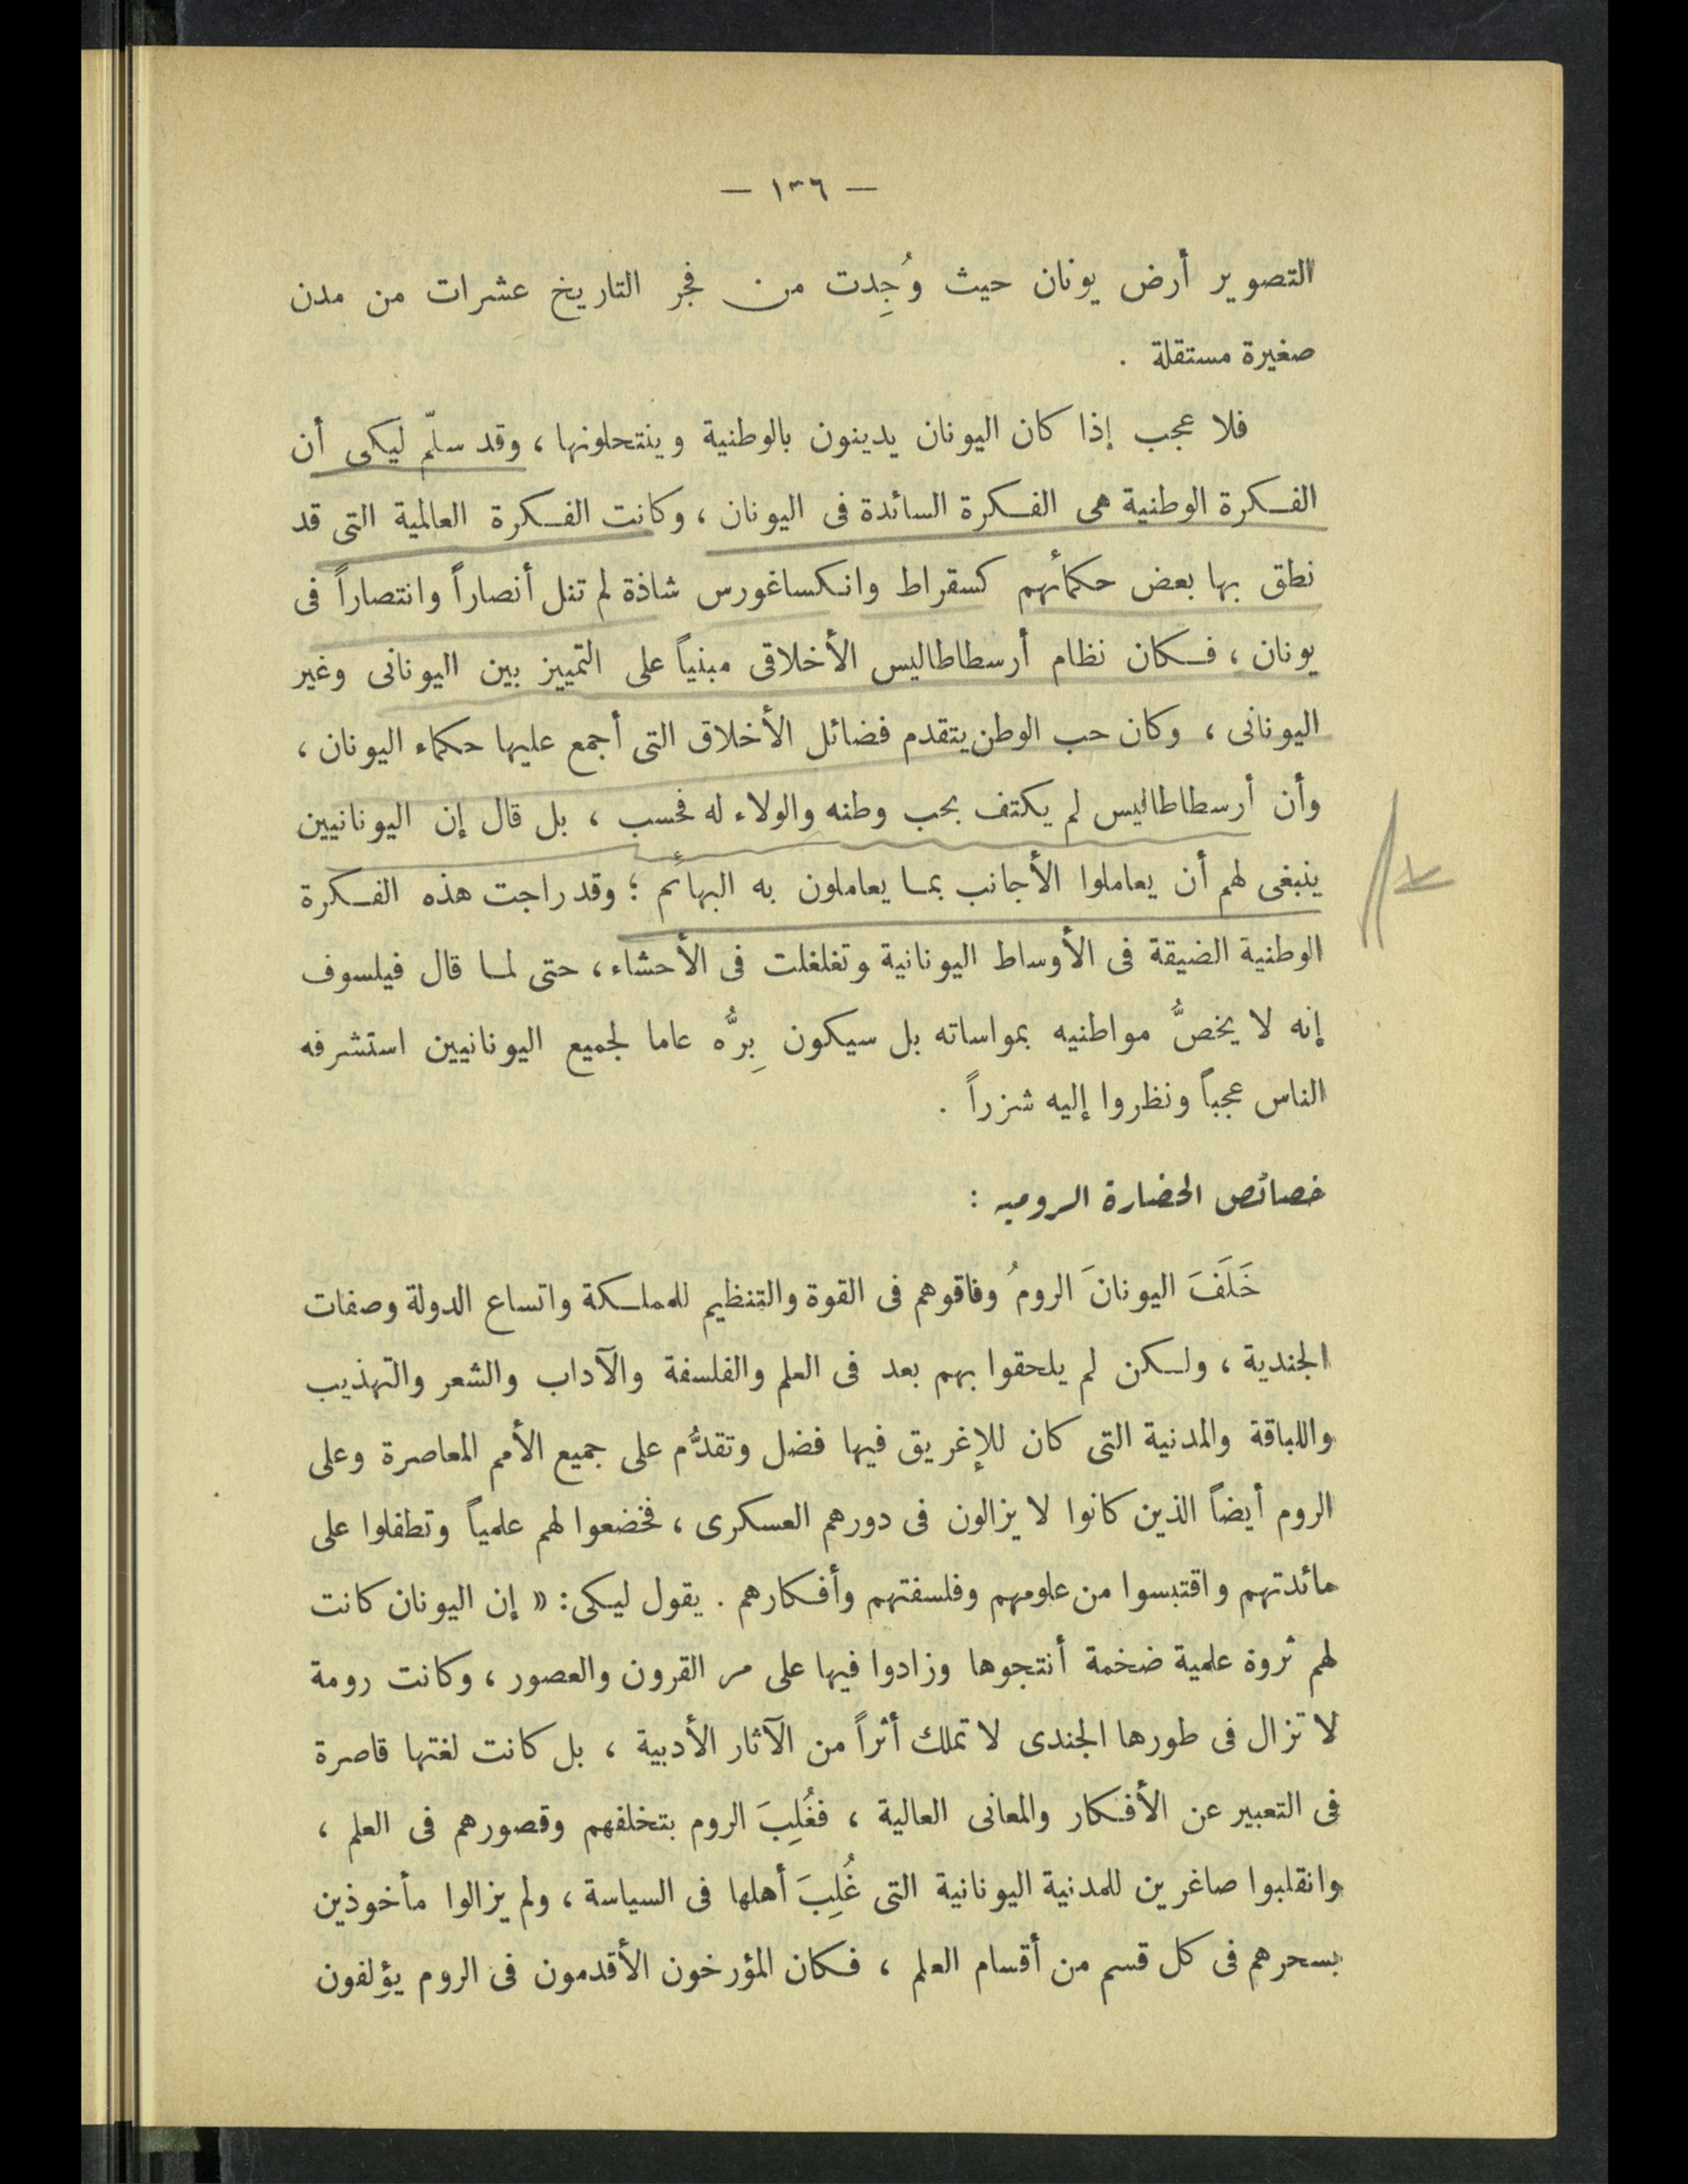 — ١٣٦ —
التصوير أرض يونان حيث وُجِدت من فجر التاريخ عشرات من مدن
صغيرة مستقلة .
فلا عجب إذا كان اليونان يدينون بالوطنية وينتحلونها ، وقد سلّم ليكى أن
الفكرة الوطنية هى الفكرة السائدة فى اليونان ، وكانت الفكرة العالمية التى قد
نطق بها بعض حكمائهم كسقراط وانكساغورس شاذة لم تنل أنصاراً وانتصاراً فى
يونان ، فكان نظام أرسطاطاليس الأخلاقى مبنياً على التمييز بين اليونانى وغير
اليونانى ، وكان حب الوطن يتقدم فضائل الأخلاق التى أجمع عليها حكماء اليونان ،
وأن أرسطاطاليس لم يكتف بحب وطنه والولاء له فحسب ، بل قال إن اليونانيين
ينبغى لهم أن يعاملوا الأجانب بما يعاملون به البهائم ؛ وقد راجت هذه الفكرة
الوطنية الضيقة فى الأوساط اليونانية وتغلغلت فى الأحشاء ، حتى لما قال فيلسوف
إنه لا يخصُّ مواطنيه بمواساته بل سيكون بِرُّه عاما لجميع اليونانيين استشرفه
الناس عجباً ونظروا إليه شزراً .
خصائص الحضارة الرومية :
خَلَفَ اليونانَ الرومُ وفاقوهم فى القوة والتنظيم للمملكة واتساع الدولة وصفات
الجندية ، ولكن لم يلحقوا بهم بعد فى العلم والفلسفة والآداب والشعر والتهذيب
واللباقة والمدنية التى كان للإغريق فيها فضل وتقدُّم على جميع الأمم المعاصرة وعلى
الروم أيضاً الذين كانوا لا يزالون فى دورهم العسكرى ، فخضعوا لهم علمياً وتطفلوا على
مائدتهم واقتبسوا من علومهم وفلسفتهم وأفكارهم . يقول ليكى : « إن اليونان كانت
لهم ثروة علمية ضخمة أنتجوها وزادوا فيها على مر القرون والعصور ، وكانت رومة
لا تزال فى طورها الجندى لا تملك أثراً من الآثار الأدبية ، بل كانت لغتها قاصرة
فى التعبير عن الأفكار والمعانى العالية ، فغُلِبَ الروم بتخلفهم وقصورهم فى العلم ،
وانقلبوا صاغرين للمدنية اليونانية التى غُلِبَ أهلها فى السياسة ، ولم يزالوا مأخوذين
بسحرهم فى كل قسم من أقسام العلم ، فكان المؤرخون الأقدمون فى الروم يؤلفون